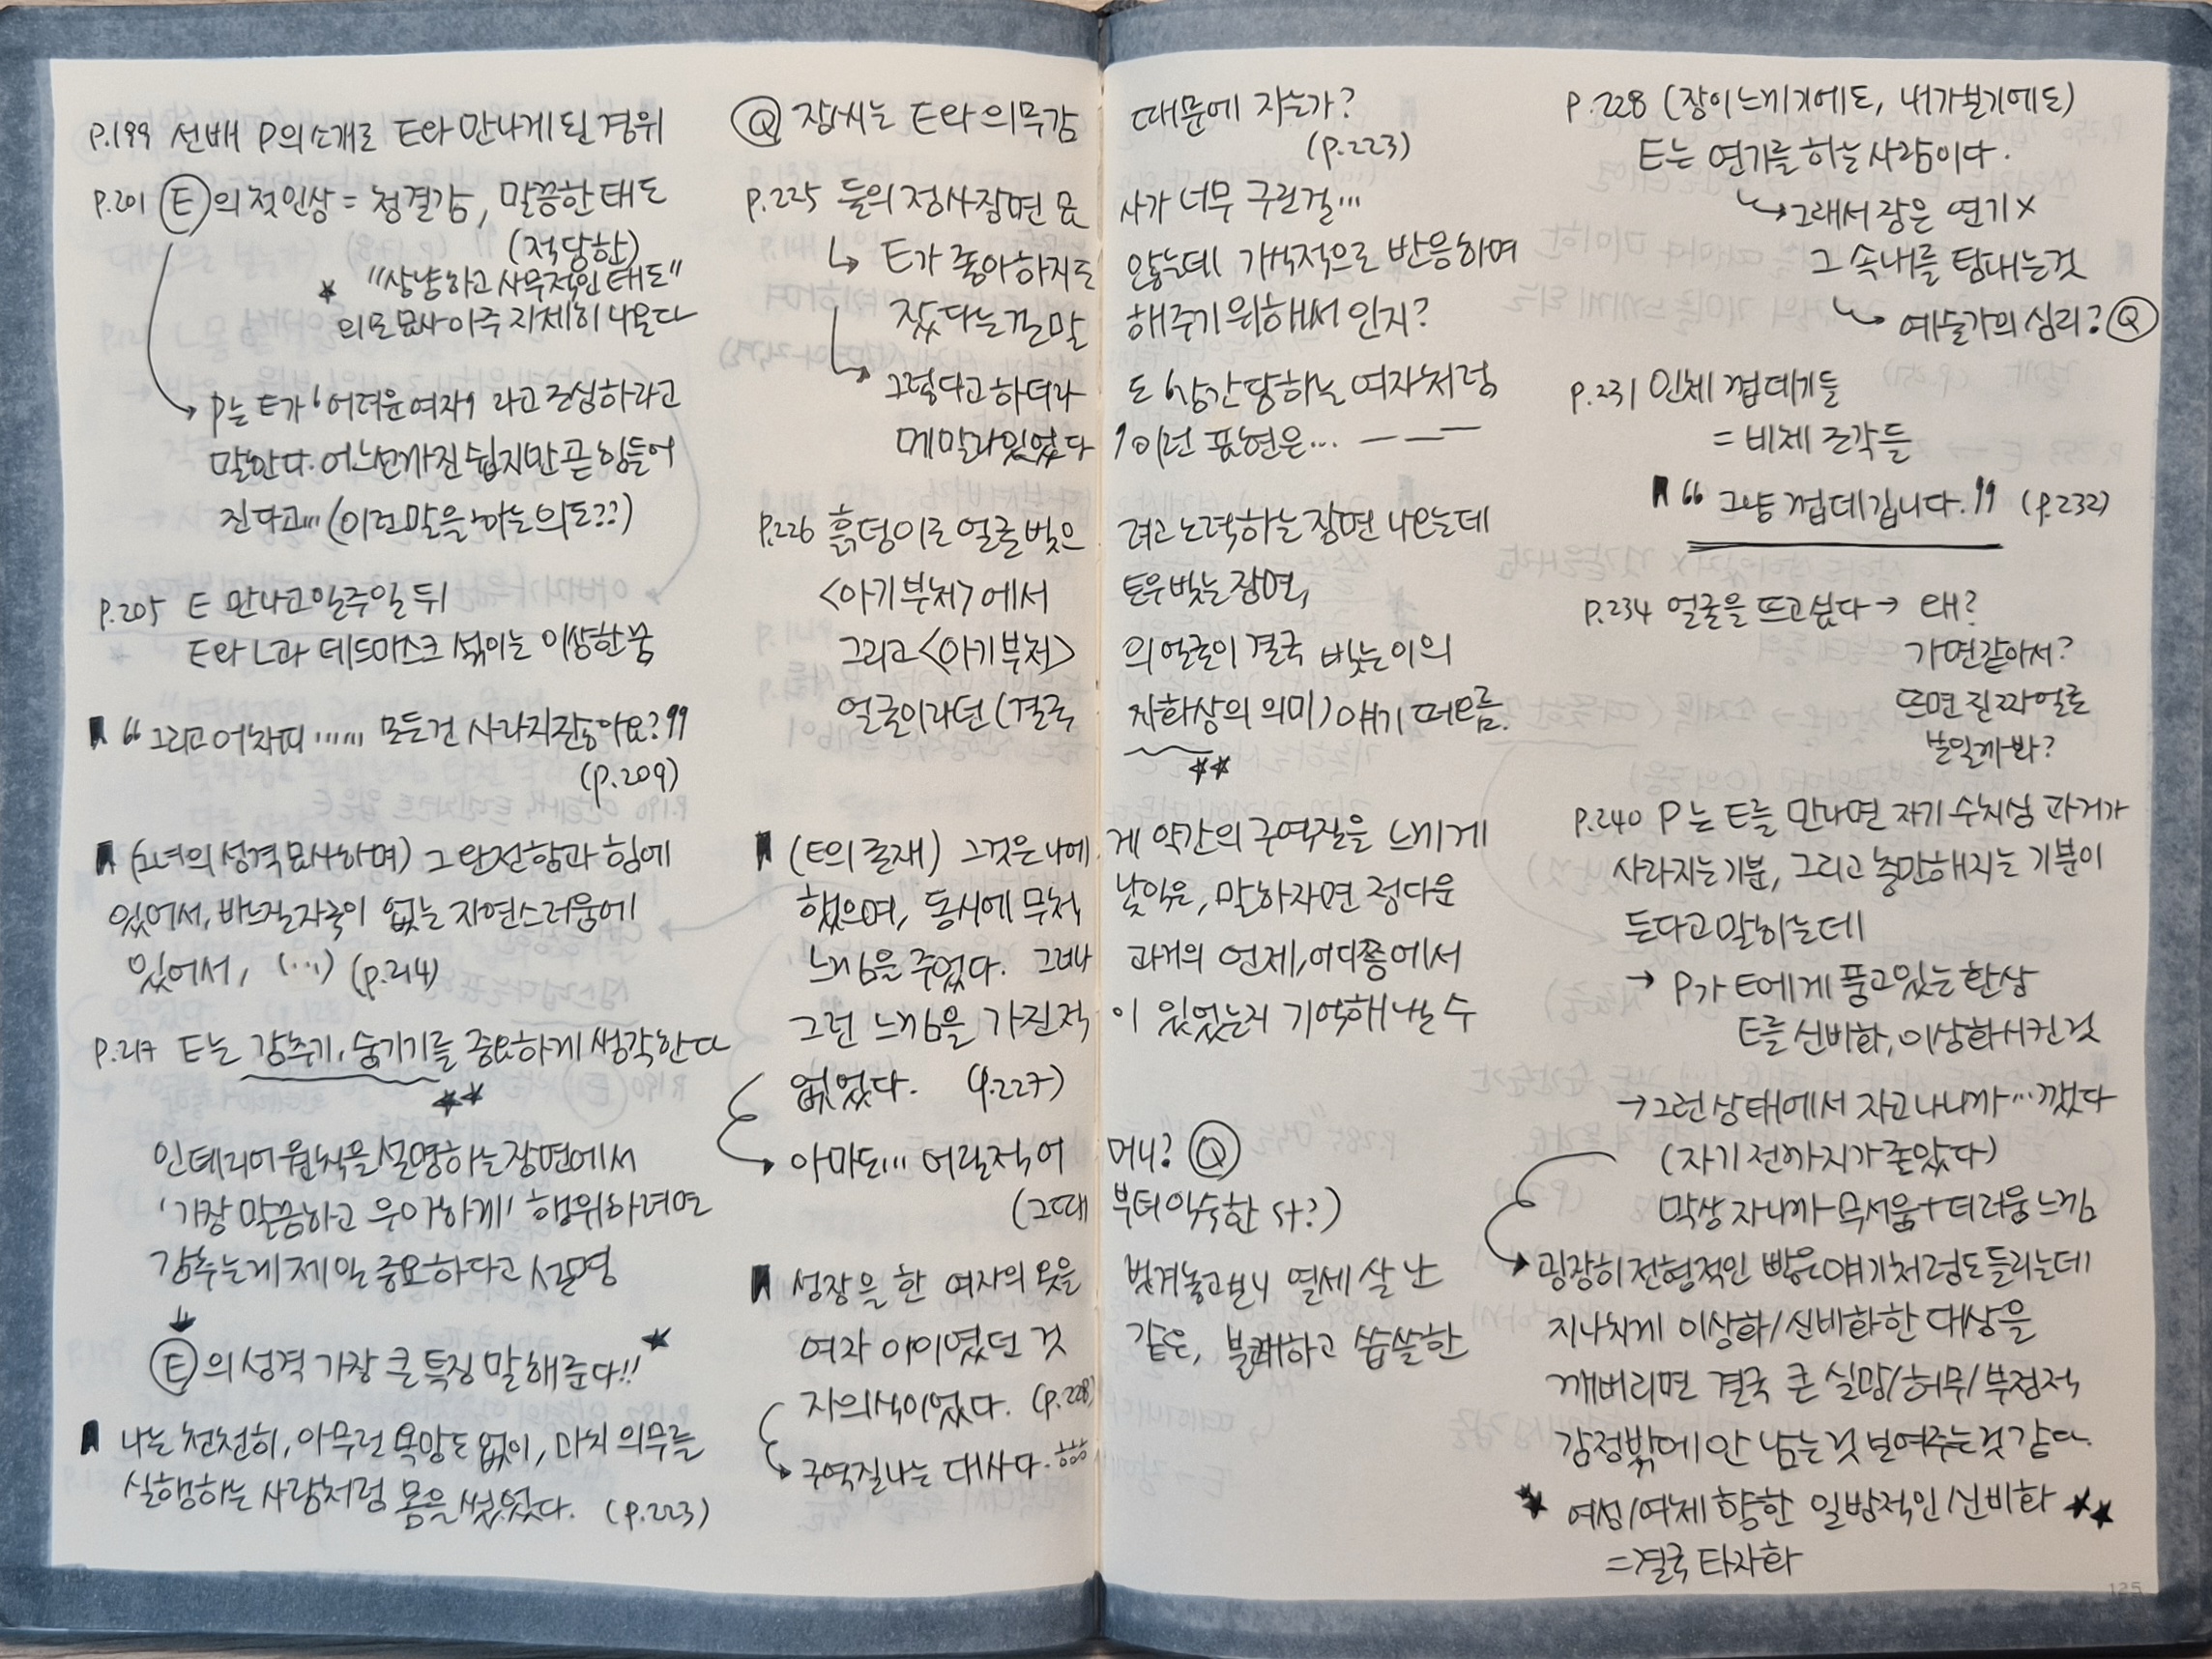 P.199 선배 P의 소개로 E와 만나게 된 경위
P.201 E의 첫인상 = 청결감, 말끔한 태도
(적당한)
★ "상냥하고 사무적인 태도"
외모묘사 아주 자세히 나온다
→ P는 E가 '어려운 여자' 라고 조심하라고
말한다. 어느선까진 쉽지만 곧 힘들어
진다고… (이런 말을 하는 의도??)
P.205 E 만나고 일주일 뒤
E와 L과 데드마스크 섞이는 이상한 꿈
"그리고 어차피 …… 모든건 사라지잖아요?"
(P.209)
(그녀의 성격 묘사하며) 그 완전함과 힘에
있어서, 바느질자국이 없는 자연스러움에
있어서, (…) (p.214)
P.217 E는 감추기, 숨기기를 중요하게 생각한다
★★
인테리어 원칙을 설명하는 장면에서
'가장 말끔하고 우아하게' 행위하려면
감추는게 제일 중요하다고 설명
↓
E의 성격 가장 큰 특징 말해준다!! ★
나는 천천히, 아무런 욕망도 없이, 마치 의무를
실행하는 사람처럼 몸을 씻었다. (P.223)
Q 장씨는 E와 의무감 때문에 자는가?
(P.223)
P.225 둘의 정사장면 묘사가 너무 구린걸…
↳ E가 좋아하지도 않는데 가식적으로 반응하며
잤다는걸 말해주기 위해서 인지?
→ 그렇다고 하더라도 '강간당하는 여자처럼
메말라있었다' 이런 표현은… ———
P.226 흙덩이로 얼굴 빚으려고 노력하는 장면 나오는데
<아기부처>에서 토우빚는 장면,
그리고 <아기부처>의 얼굴이 결국 빚는이의
얼굴이라던 (결국 자화상의 의미) 얘기 떠오름.
★★
(E의 존재) 그것은 나에게 약간의 구역질을 느끼게
했으며, 동시에 무척 낯익은, 말하자면 정다운
느낌을 주었다. 그러나 과거의 언제, 어디쯤에서
그런 느낌을 가진적이 있었는지 기억해낼 수
없었다. (P.227)
→ 아마도… 어릴적 어머니? Q
(그때부터 익숙한 것?)
성장을 한 여자의 옷을 벗겨놓고보니 열세 살 난
여자 아이였던 것 같은, 불쾌하고 씁쓸한
자의식이었다. (P.228)
→ 구역질나는 대사다. ㅎㅎㅎ
P.228 (장이느끼기에도, 내가보기에도)
E는 연기를 하는 사람이다.
↳ 그래서 장은 연기X
그 속내를 탐내는것
↳ 예술가의 심리? Q
P.231 인체 껍데기들
= 비제 조각들
"그냥 껍데깁니다." (P.232)
P.234 얼굴을 뜨고싶다 → 왜?
가면같아서?
뜨면 진짜얼굴
보일까봐?
P.240 P는 E를 만나면 자기 수치심 과거가
사라지는기분, 그리고 충만해지는 기분이
든다고 말하는데
→ P가 E에게 품고있는 환상
E를 신비화, 이상화시킨것
→ 그런상태에서 자고나니까…깼다
(자기 전까지가 좋았다)
막상 자니까 무서움+더러움 느낌
→ 굉장히 전형적인 빻은얘기처럼도 들리는데
지나치게 이상화/신비화한 대상을
깨버리면 결국 큰 실망/허무/부정적
감정밖에 안 남는것 보여주는것 같다.
★ 여성/여체 향한 일방적인/신비화 ★★
=결국 타자화
125